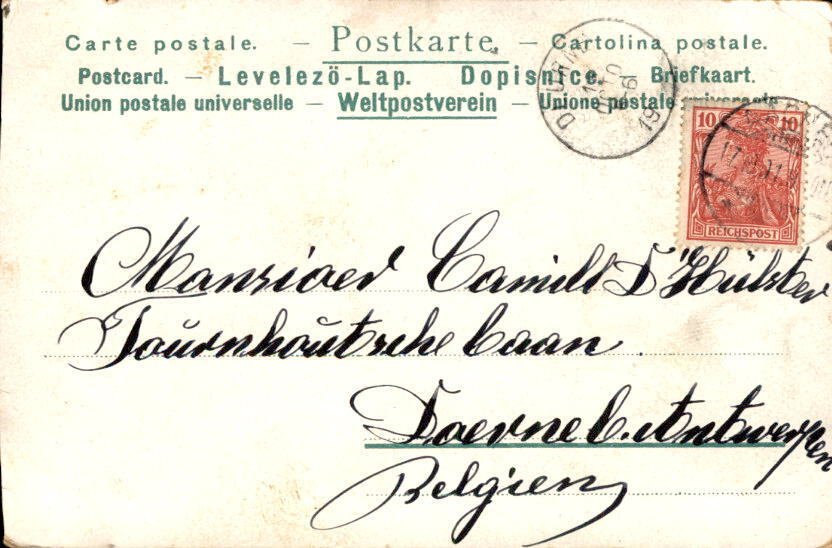 Carte postale. — Postkarte. — Cartolina postale.
Postcard. — Levelező-Lap. Dopisnice. Briefkaart.
Union postale universelle — Weltpostverein — Unione postale universale
DEURNE
10 10
REICHSPOST
Mansiaer Camill D'Hülster
Tournhoutsche laan
Doerne b. Antwerpen
Belgien